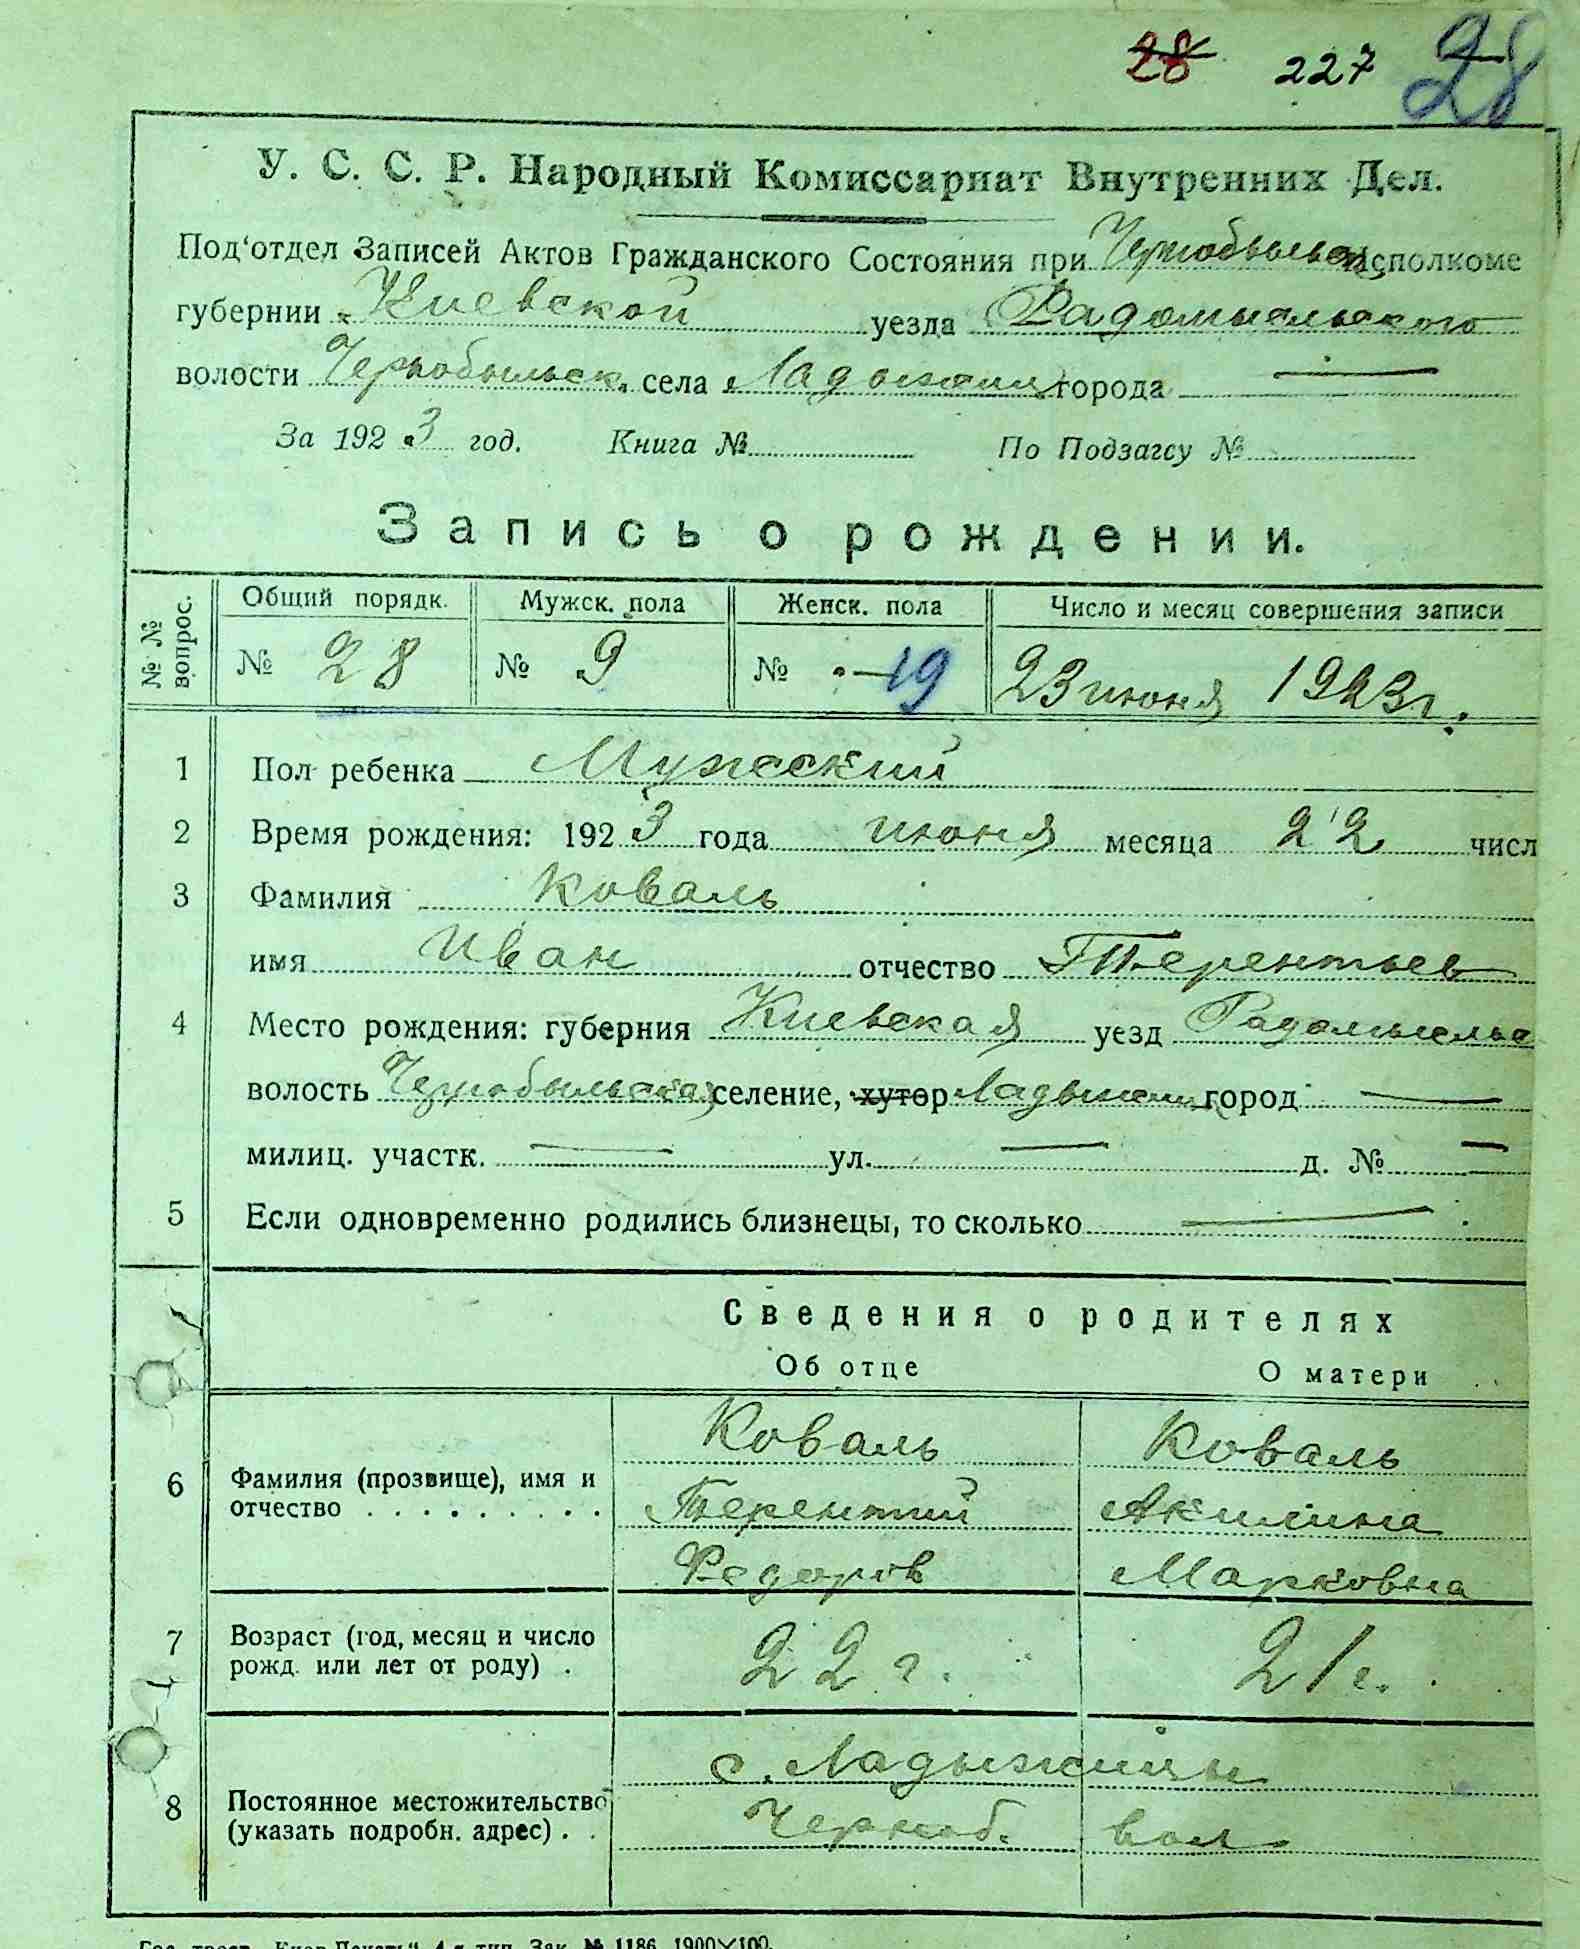 28 227 28
У. С. С. Р. Народный Комиссариат Внутренних Дел.
Под'отдел Записей Актов Гражданского Состояния при Чернобыльск исполкоме
губернии Киевской уезда Радомысльского
волости Чернобыльск. села Ладыжичи города —
За 1923 год. Книга № По Подзагсу №
Запись о рождении.
№ № вопрос.
Общий порядк. Мужск. пола Женск. пола Число и месяц совершения записи
№ 28 № 9 № -19 23 июня 1923 г.
1 Пол ребенка Мужеский
2 Время рождения: 1923 года июня месяца 22 числ
3 Фамилия Коваль
имя Иван отчество Терентьев
4 Место рождения: губерния Киевская уезд Радомысльс
волость Чернобыльская селение, хутор Ладыжичи город —
милиц. участк. — ул. — д. № —
5 Если одновременно родились близнецы, то сколько —
Сведения о родителях
Об отце О матери
Коваль Коваль
6 Фамилия (прозвище), имя и
отчество . . . . . . . . . Терентий Акилина
Федоров Марковна
7 Возраст (год, месяц и число
рожд. или лет от роду) . 22 г. 21 г.
с. Ладыжичи
8 Постоянное местожительство
(указать подробн. адрес) . . Черноб. вол
Гос. трест „Киев-Печать“ 4-я тип. Зак. № 1186 1900×100.